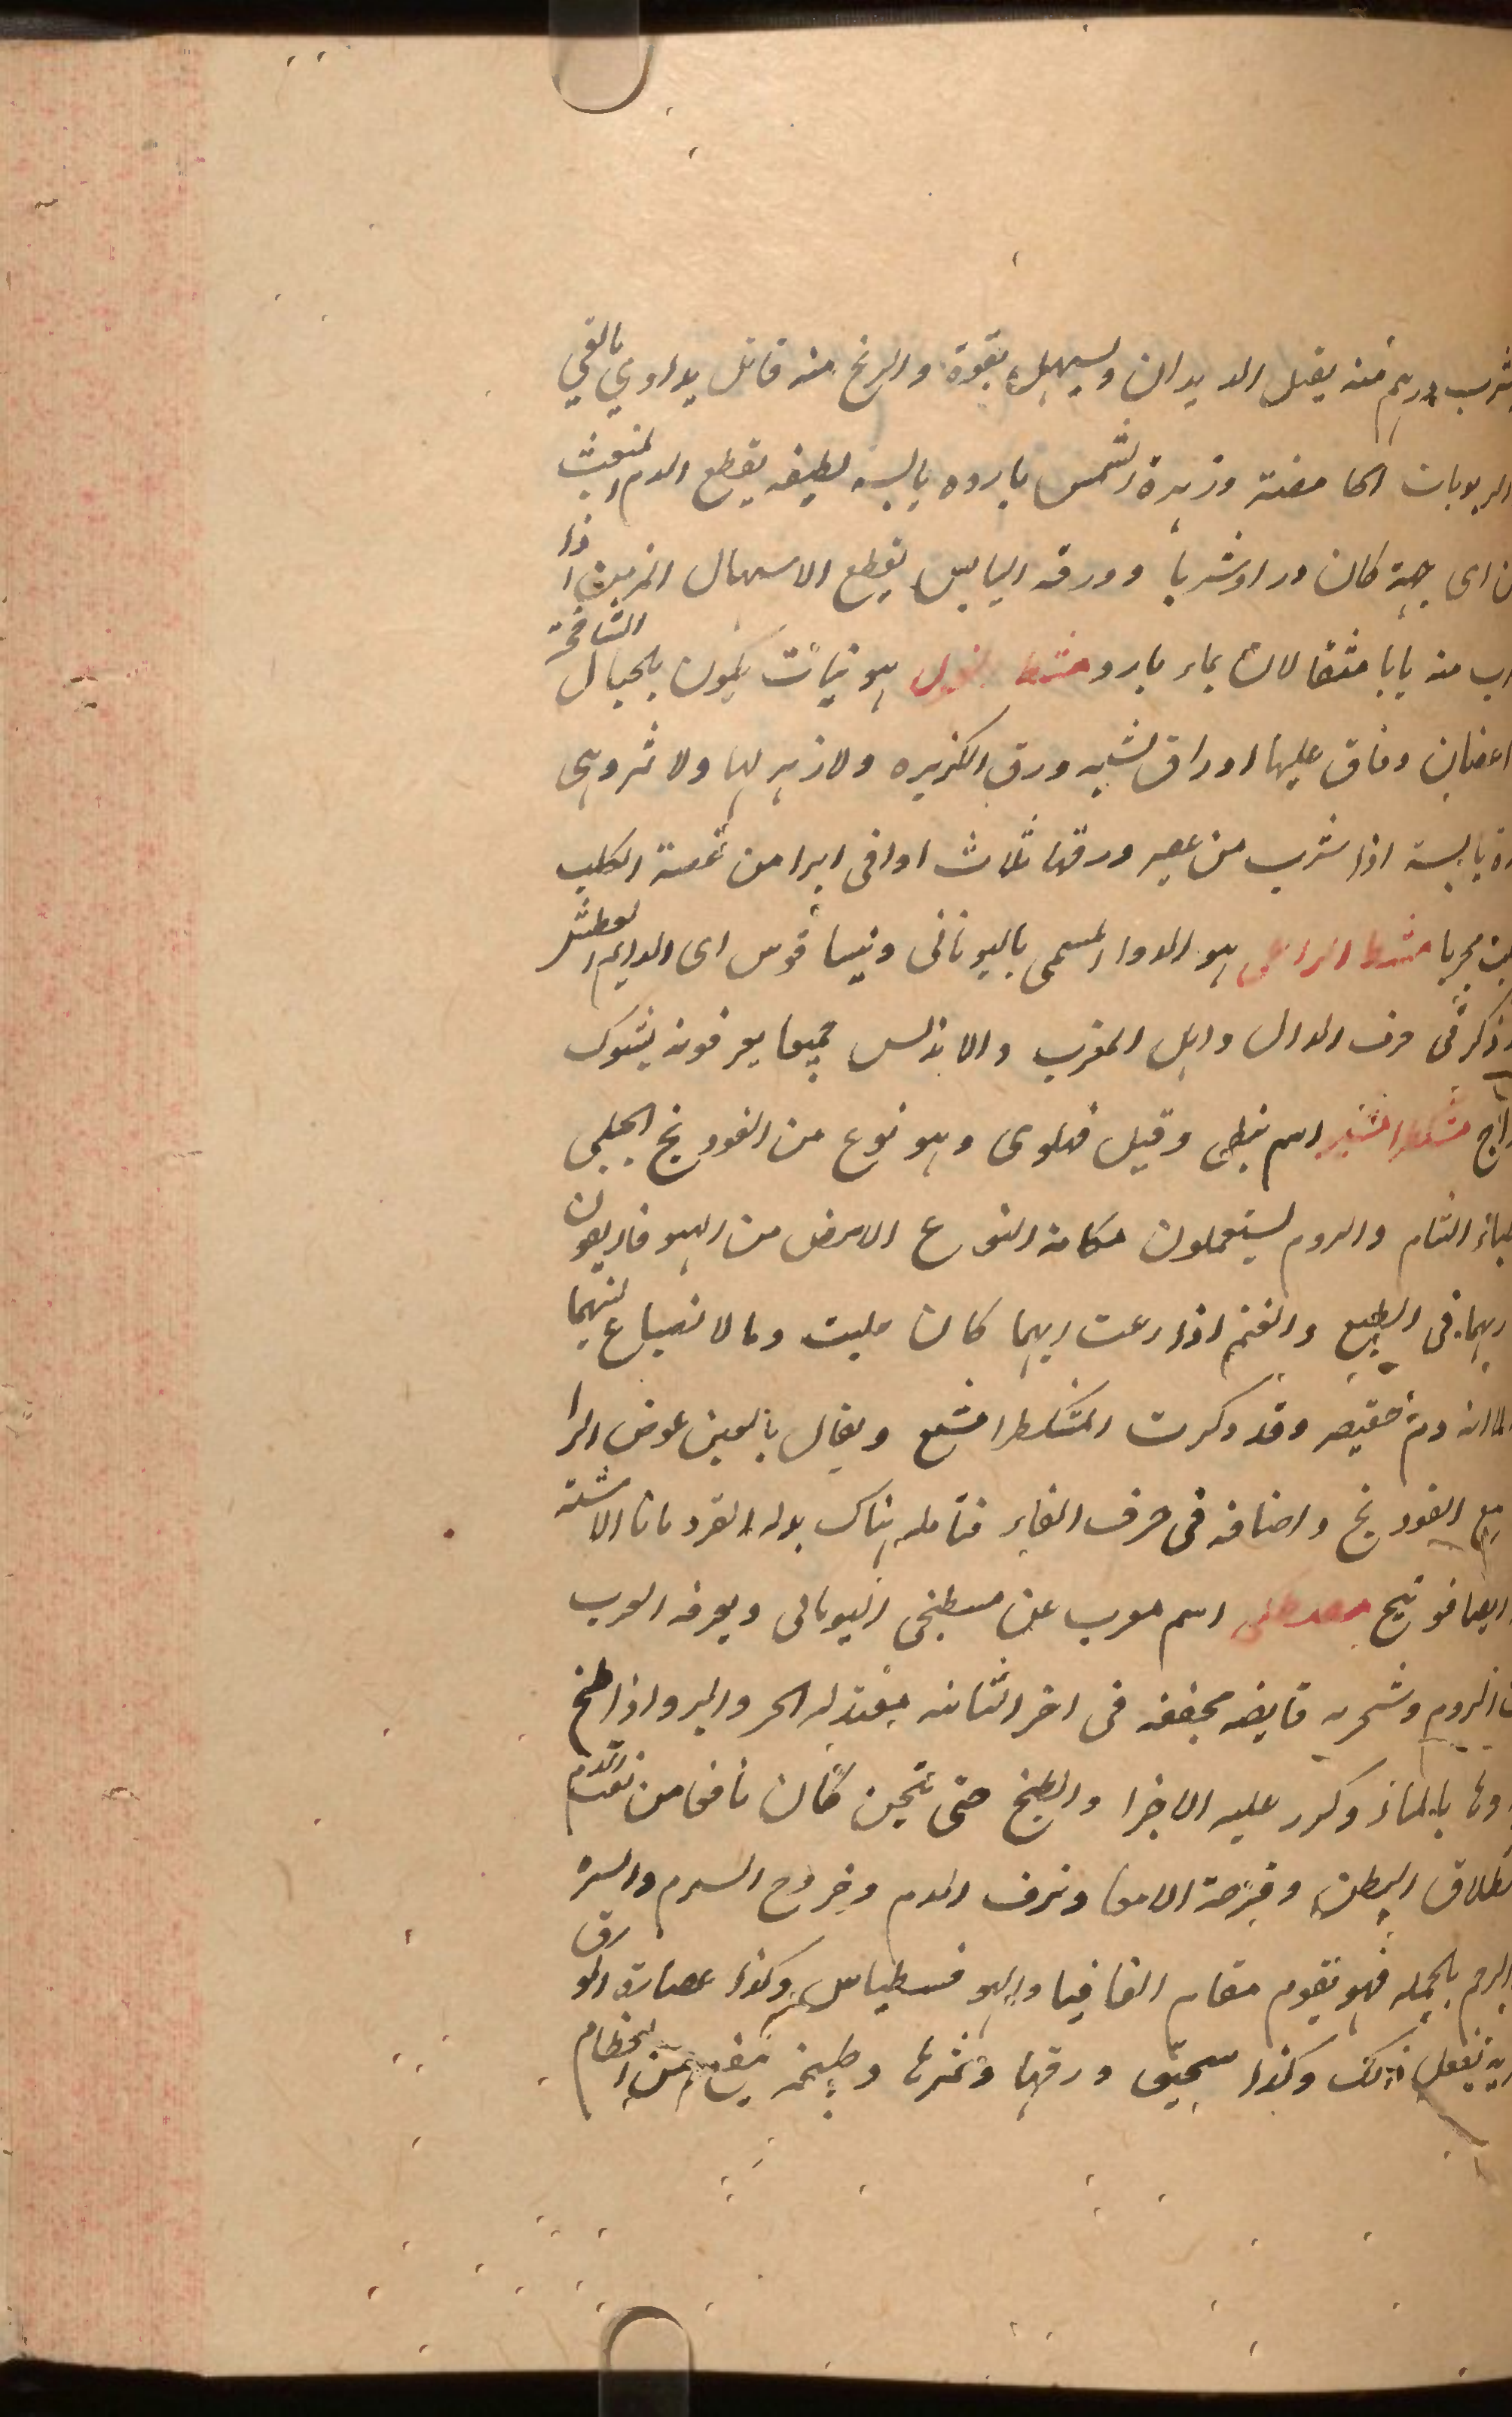 شرب درهم منه يقبل الديدان ويسهل بقوة والرنخ منه قاتل يداوي بالقي
الربوبات الحامضة وزهرة الشمس بارده يابسه لطيفه يقطع الدم المنعث
من اى جهة كان ذرا وشربا وورقه اليابس يقطع الاسهال المزمن اذا
شرب منه يابا مثقالان بماء بارد مشط الغول هو نبات يكون بالجبال الشامخة
اغصان دقاق عليها اوراق تشبه ورق الكزبره ولا زهر لها ولا ثمر وهى
يابسة اذا شرب من عصير ورقها ثلاث اواقى ابرا من عضة الكلب
مجربا مشط الراعى هو الدوا المسمى باليونانى ديبساقوس اى الدايم العطش
ذكر فى حرف الدال واهل المغرب والاندلس جميعا يعرفونه بشوك
مشكطرامشير اسم نبطى وقيل فهلوى وهو نوع من الفودنج الجبلى
الشام والروم يستعملون مكانه النوع الابيض من الهيوفاريقون
فى الطبع والغنم اذا رعت ايهما كان حلبت دما لانصباع لبنهما
دم حقيقى وقد ذكرت المشكطرامشع ويقال بالعين عوض الرا
مع الفودنج واصنافه فى حرف الفاء فتامله هناك بدله القردمانا الاشنه
ايضا فوتنج مصطكى اسم معرب عن مسطيخى اليونانى ويعرفه العرب
الروم وشجره قابضه مجففه فى اخر الثانيه معتدله الحر والبرد اذا طبخ
بالماء وكرر عليه الاجزا والطبخ حتى ثخين كان نافعا من نفث الدم
البطن وقرحة الامعا ونزف الدم وخروج السرم والسره
الرحم بالجمله فهو يقوم مقام القاقيا والهوفسطيداس وكذا عصارة الورق
يفعل ذلك وكذا سحيق ورقها وثمرها وطبخه ينفع من العظام